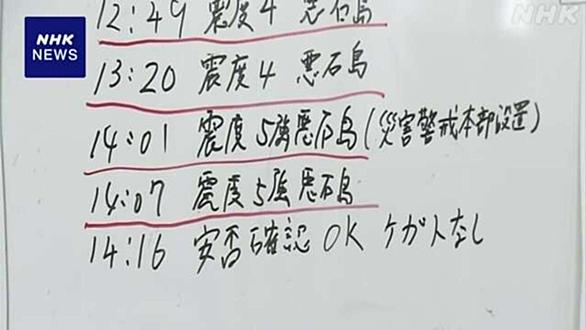 NHK
NHK
NEWS
12:49 震度4 悪石島
13:20 震度4 悪石島
14:01 震度5強 悪石島(災害警戒本部設置)
14:07 震度5強 悪石島
14:16 安否確認 OK ケガ人なし